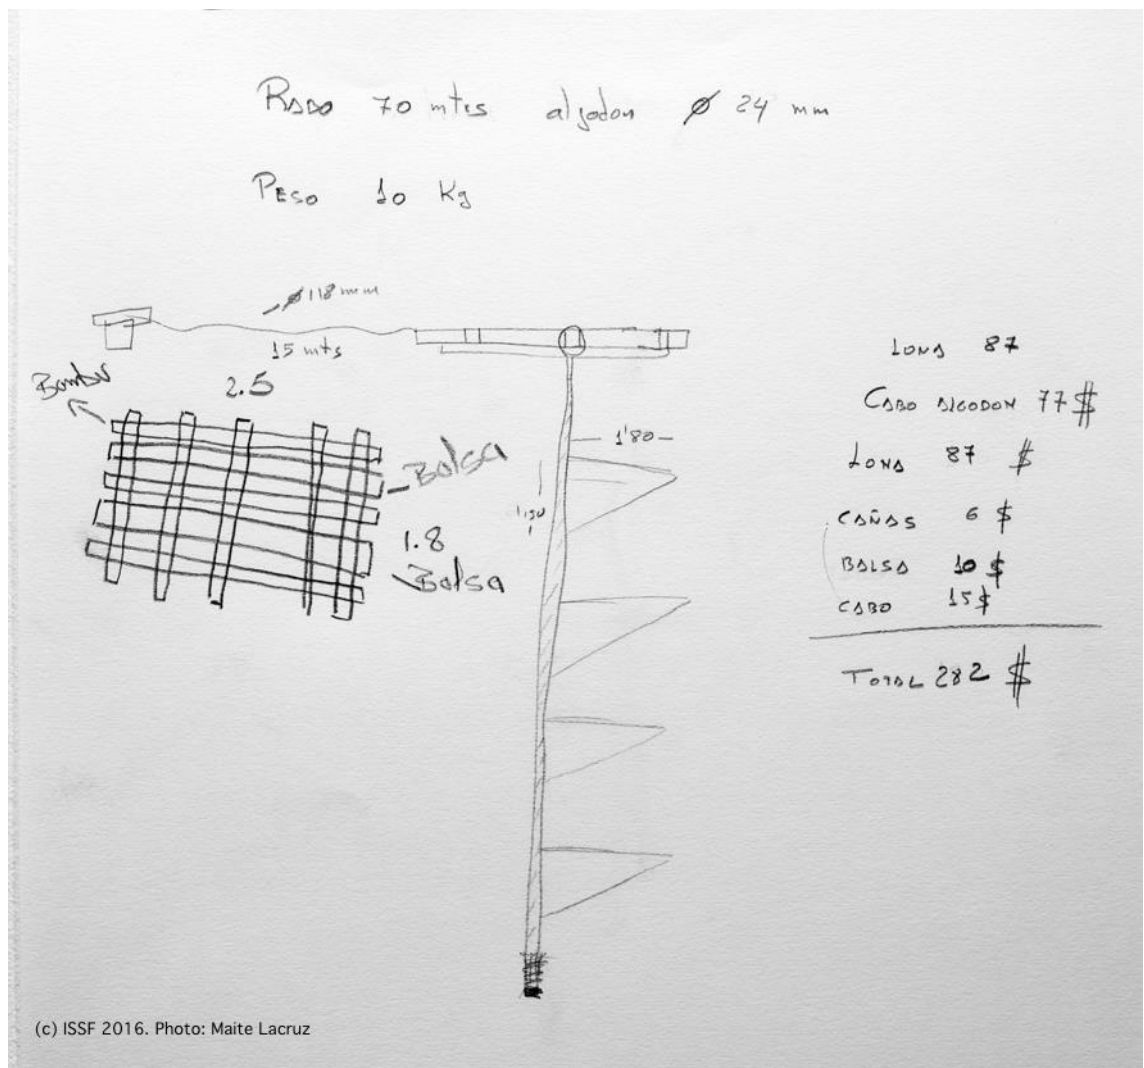 RABO 70 mtrs algodon Ø 24 mm
PESO 10 Kg
Ø 118 mm
15 mts
Bambu
2.5
Balsa
1.8
Balsa
1'80
LONA 87
CABO ALGODON 77 $
LONA 87 $
CAÑAS 6 $
BALSA 10 $
CABO 15 $
TOTAL 282 $
(c) ISSF 2016. Photo: Maite Lacruz